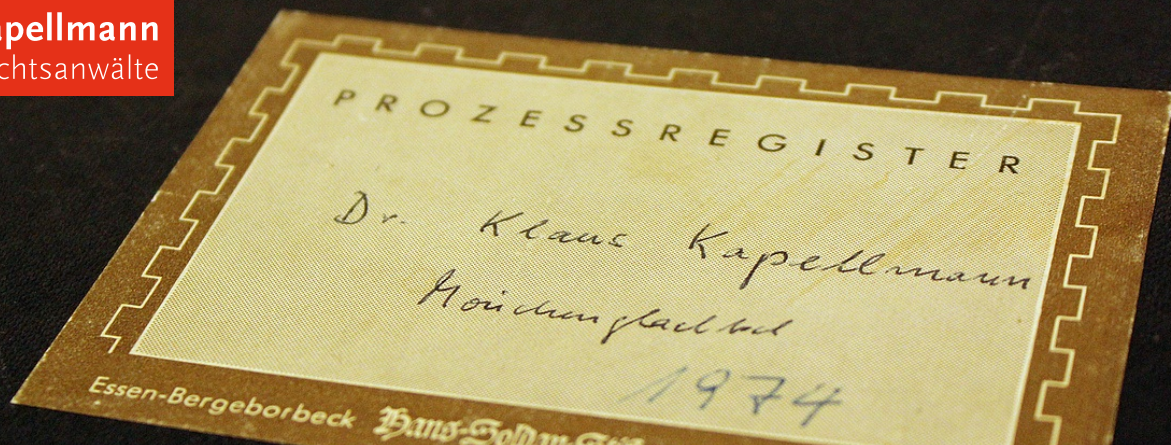 apellmann
chtsanwälte
PROZESSREGISTER
Dr. Klaus Kapellmann
Mönchengladbach
1974
Essen-Bergeborbeck Hans-Soldan-Stif